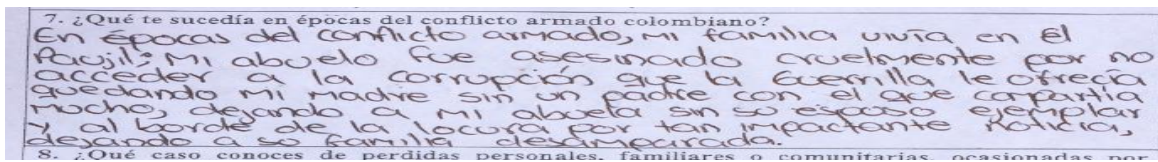 7. ¿Qué te sucedía en épocas del conflicto armado colombiano?
En épocas del conflicto armado, mi familia vivía en el
Paujil; Mi abuelo fue asesinado cruelmente por no
acceder a la corrupción que la Guerrilla le ofrecía
quedando mi madre sin un padre con el que compartía
mucho, dejando a mi abuela sin su esposo ejemplar
y al borde de la locura por tan impactante noticia,
dejando a su familia desamparada.
8. ¿Qué caso conoces de perdidas personales, familiares o comunitarias, ocasionadas por